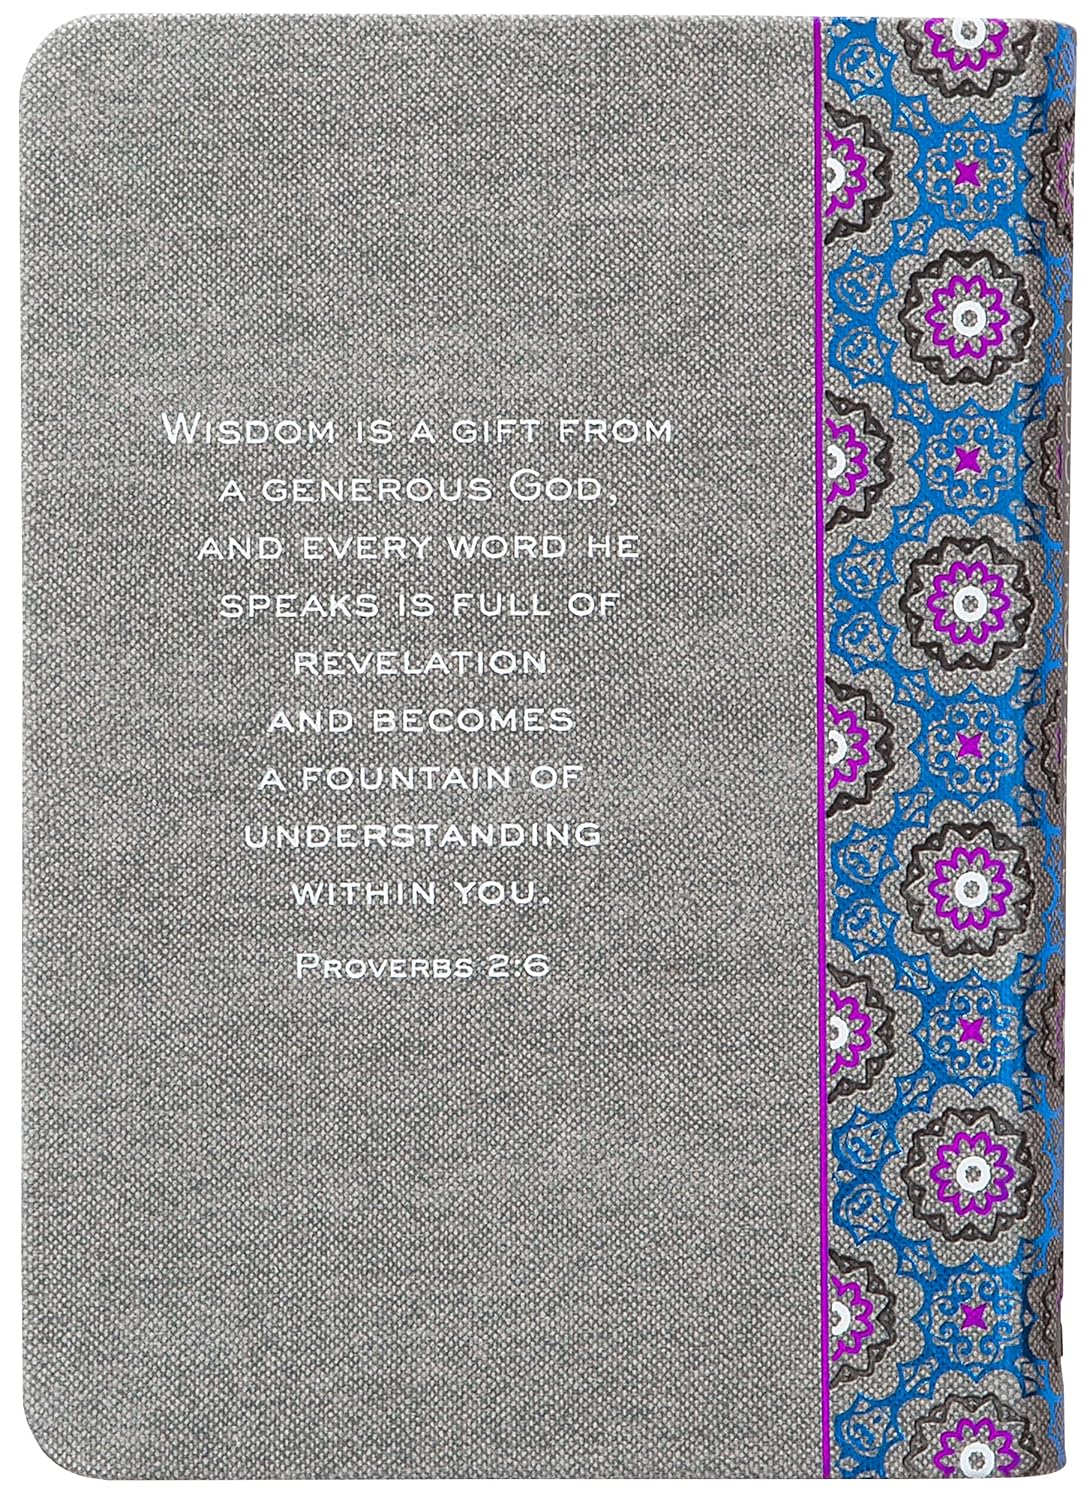 Wisdom is a gift from
a generous God,
and every word he
speaks is full of
revelation
and becomes
a fountain of
understanding
within you.
Proverbs 2:6